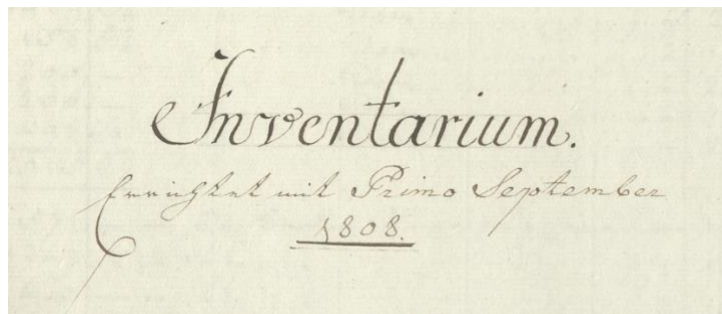 Inventarium.
Errichtet mit Primo September
1808.